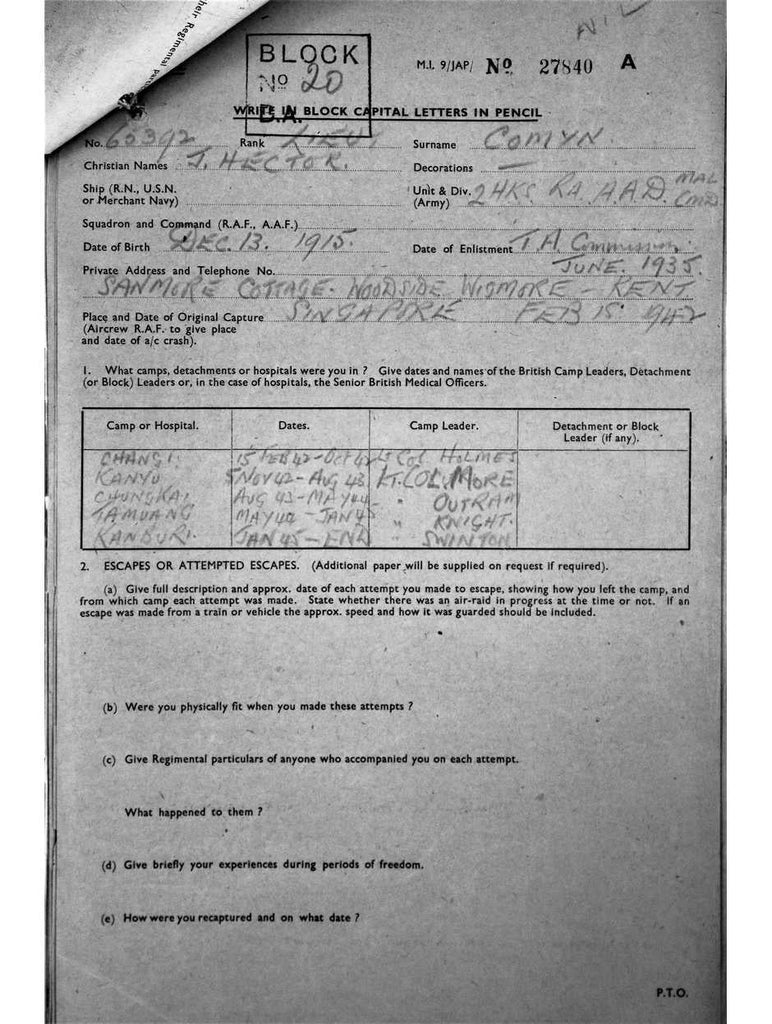 heir Regimental Part
NIL
BLOCK
No 20
B.A.
M.I. 9/JAP/ No. 27840 A
WRITE IN BLOCK CAPITAL LETTERS IN PENCIL
No. 65392 Rank LIEUT Surname COMYN
Christian Names J. HECTOR. Decorations —
Ship (R.N., U.S.N. or Merchant Navy)
Unit & Div. (Army) 2 HKS. RA. A.A.D. MAL CMD
Squadron and Command (R.A.F., A.A.F.)
Date of Birth DEC. 13. 1915. Date of Enlistment T.A. Commission JUNE. 1935.
Private Address and Telephone No.
SANMORE COTTAGE. WOODSIDE WIGMORE KENT
Place and Date of Original Capture SINGAPORE FEB 15. 1942
(Aircrew R.A.F. to give place
and date of a/c crash).
1. What camps, detachments or hospitals were you in ? Give dates and names of the British Camp Leaders, Detachment
(or Block) Leaders or, in the case of hospitals, the Senior British Medical Officers.
Camp or Hospital. Dates. Camp Leader. Detachment or Block Leader (if any).
CHANGI 15 FEB 42 - OCT 42 Lt Col HOLMES
KANYU 5 NOV 42 - AUG 43 LT. COL. MORE
CHUNGKAI AUG 43 - MAY 44 " OUTRAM
TAMUANG MAY 44 - JAN 45 " KNIGHT.
KANBURI. JAN 45 - END " SWINTON
2. ESCAPES OR ATTEMPTED ESCAPES. (Additional paper will be supplied on request if required).
(a) Give full description and approx. date of each attempt you made to escape, showing how you left the camp, and
from which camp each attempt was made. State whether there was an air-raid in progress at the time or not. If an
escape was made from a train or vehicle the approx. speed and how it was guarded should be included.
(b) Were you physically fit when you made these attempts ?
(c) Give Regimental particulars of anyone who accompanied you on each attempt.
What happened to them ?
(d) Give briefly your experiences during periods of freedom.
(e) How were you recaptured and on what date ?
P.T.O.